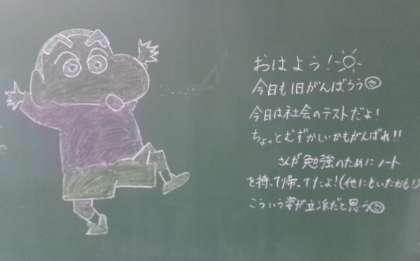 おはよう!
今日も1日がんばろう
今日は社会のテストだよ!
ちょっとむずかしいかもがんばれ!!
さんが勉強のためにノート
を持って帰ってたよ!(他にもいたかも!)
こういう姿が立派だと思う